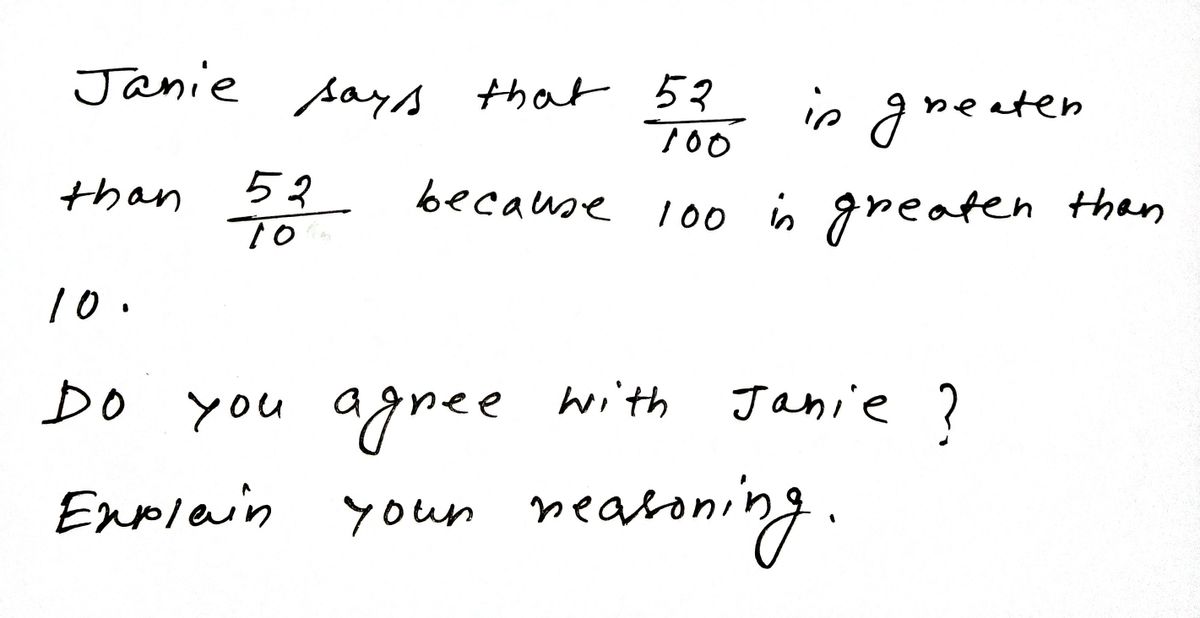 Janie says that 52/100 is greater
than 52/10 because 100 is greater than
10.
Do you agree with Janie ?
Explain your reasoning.